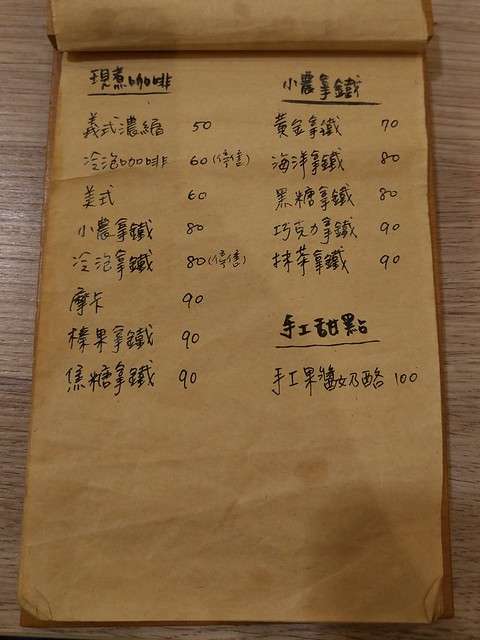 現煮咖啡
義式濃縮 50
冷泡咖啡 60(停售)
美式 60
小農拿鐵 80
冷泡拿鐵 80(停售)
摩卡 90
榛果拿鐵 90
焦糖拿鐵 90
小農拿鐵
黃金拿鐵 70
海洋拿鐵 80
黑糖拿鐵 80
巧克力拿鐵 90
抹茶拿鐵 90
手工甜點
手工果醬奶酪 100